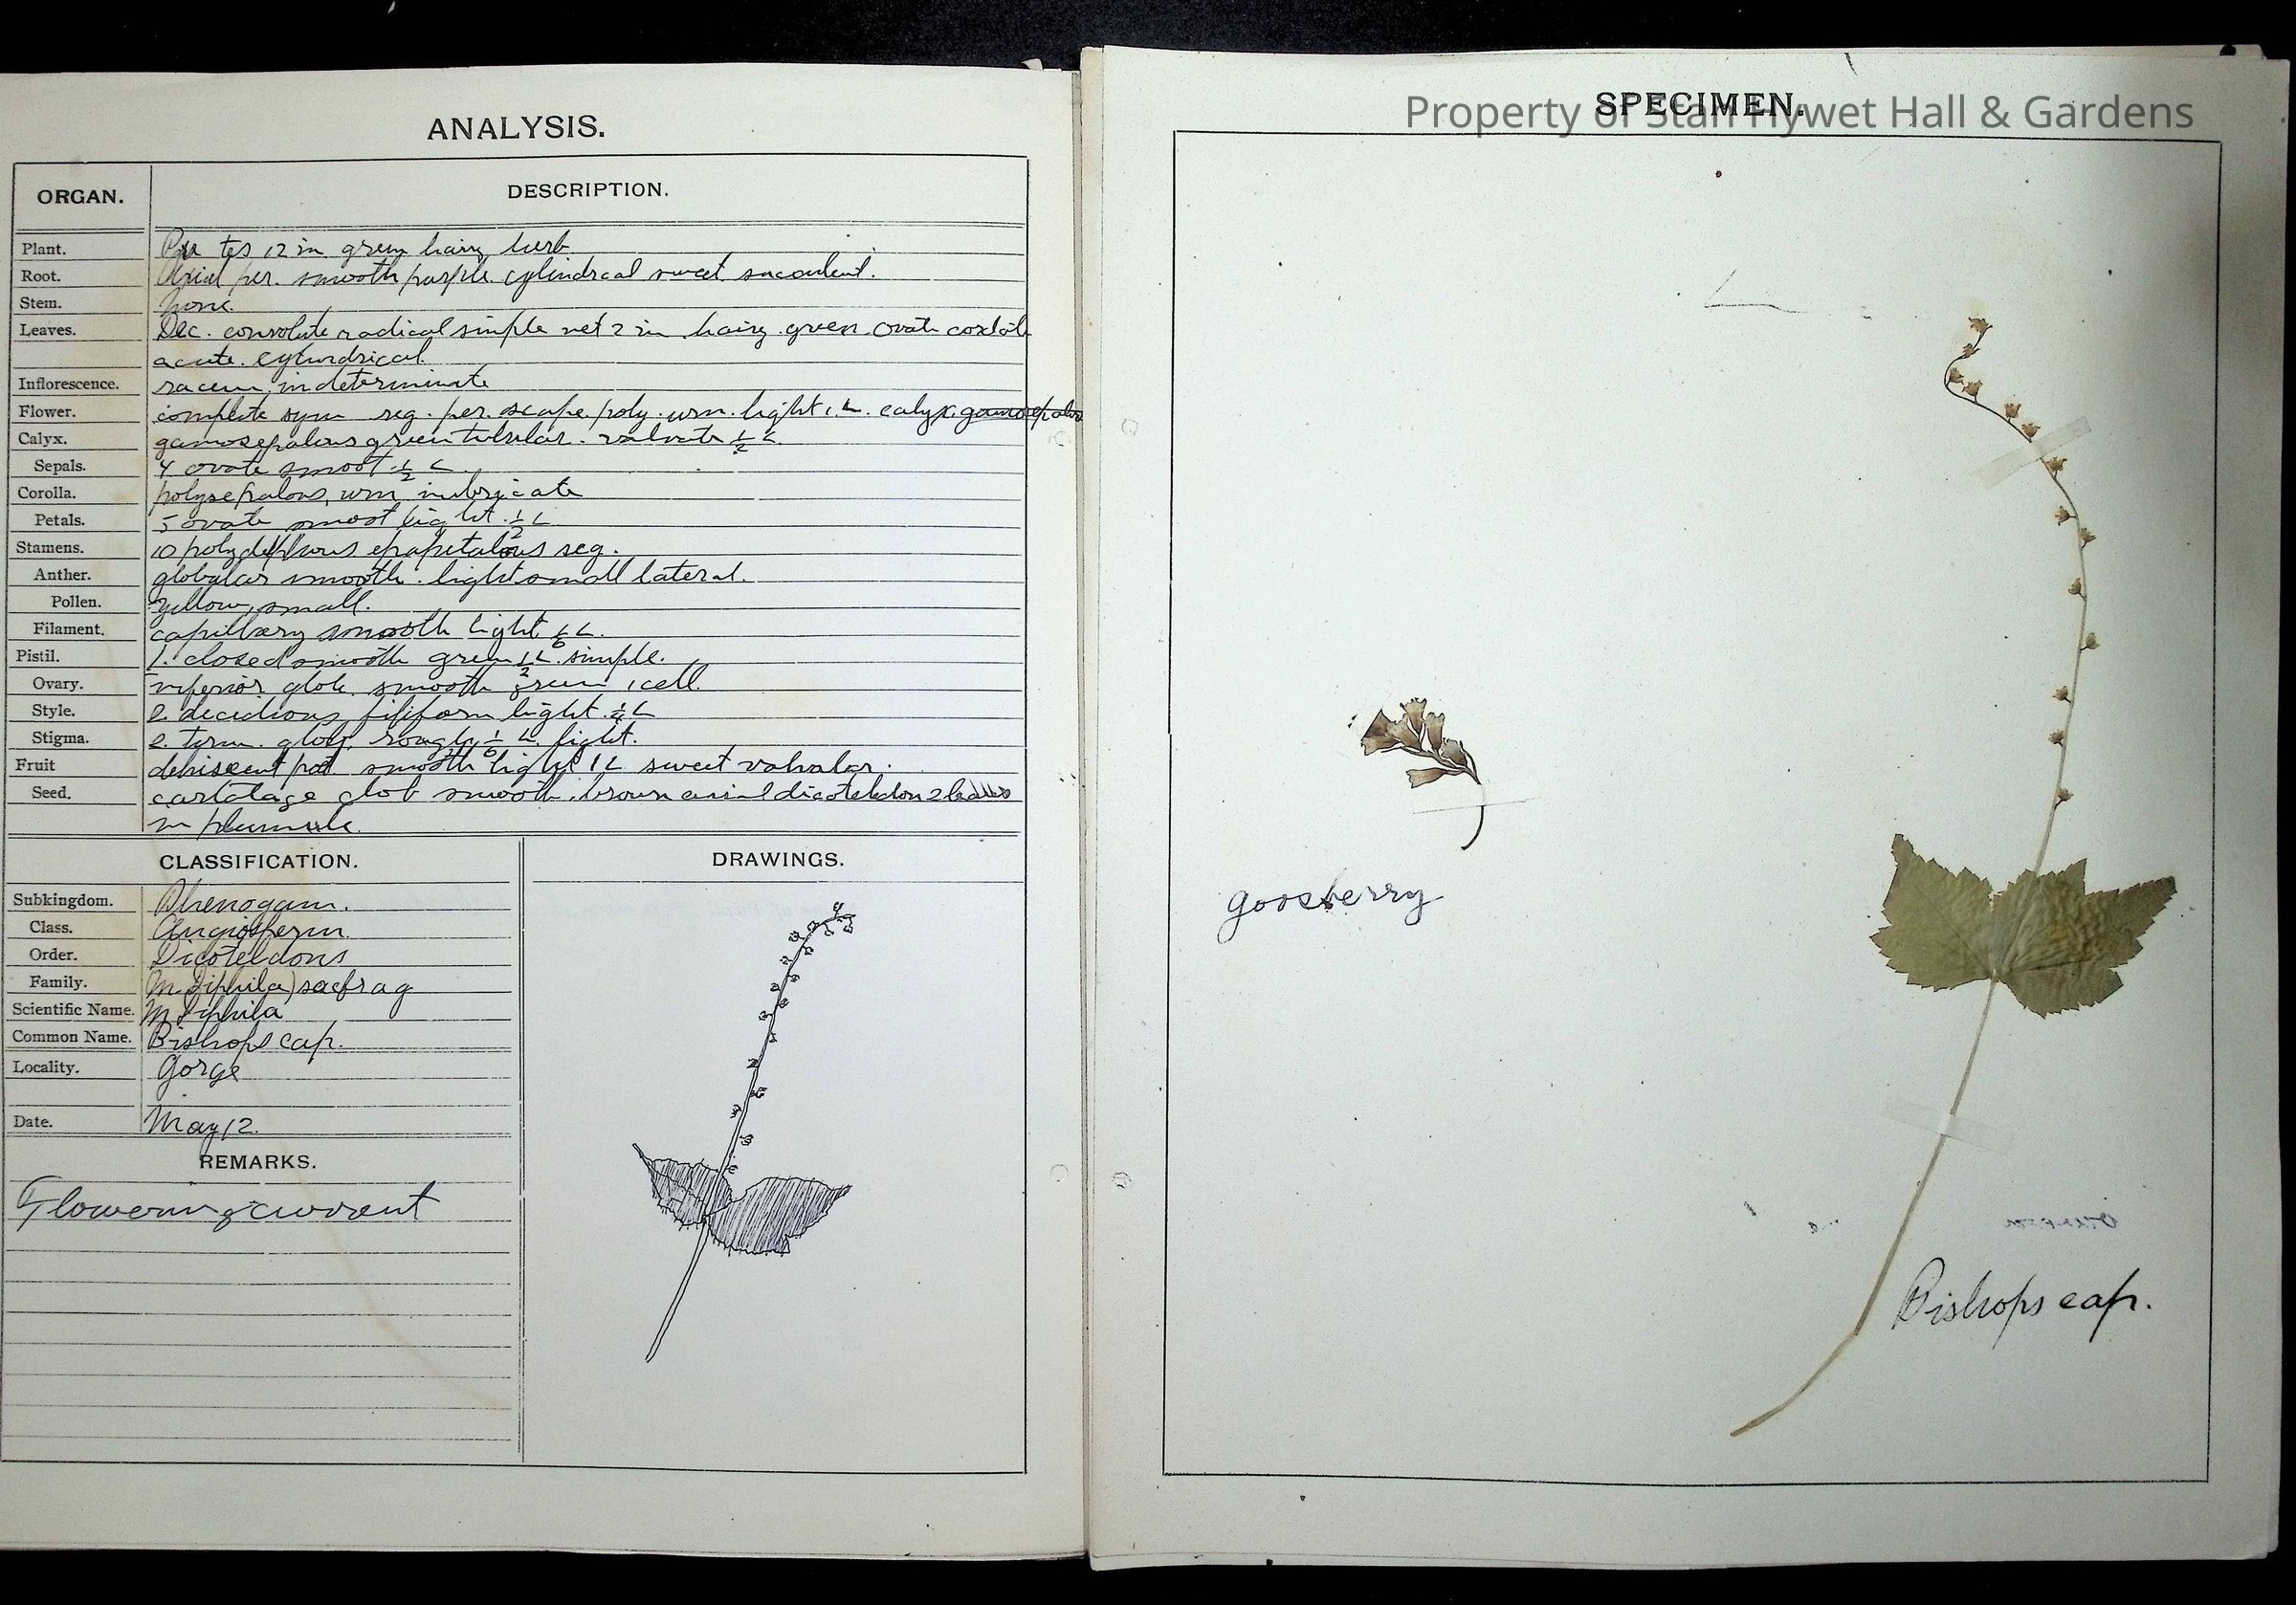 ANALYSIS.
ORGAN. DESCRIPTION.
Plant. tes 12 in green hairy herb.
Root. Axial per. smooth purple. cylindrcal sweet succulent.
Stem. None.
Leaves. Dec. convolute radical simple net 2 in. hairy green ovate cordate
acute. cylindrical.
Inflorescence. racem, indeterminate
Flower. complete sym reg. per. scape. poly. urn. light. 1 L. calyx. gamosepalous
Calyx. gamosepalous green tubular. valvate 1/2 L.
Sepals. 4 ovate smoot 1/2 L.
Corolla. polysepalous, urn, imbricate
Petals. 5 ovate smoot light. 1/2 L
Stamens. 10 epapetalous reg.
Anther. globular smooth. light small lateral.
Pollen. yellow, small.
Filament. capillary smooth light 1/6 L.
Pistil. 1. closed smooth green 1/2 L. simple.
Ovary. inferior glob. smooth green 1 cell.
Style. 2. decidious filiform light. L
Stigma. 2. term. glob. rough 1/6 L. light.
Fruit dehiscent pod smooth light 1 L sweet valvular.
Seed. cartilage glob smooth. brown axial dicoteledon 2 leaves
in plumule.
CLASSIFICATION. DRAWINGS.
Subkingdom. Phenogam.
Class. Angiosperm.
Order. Dicoteldons
Family. M. Diphila) saefrag
Scientific Name. M Diphila
Common Name. Bishops cap.
Locality. Gorge
Date. May 12.
REMARKS.
Flowering current
SPECIMEN.
Property of Stan Hywet Hall & Gardens
goosberry
Bishops cap.